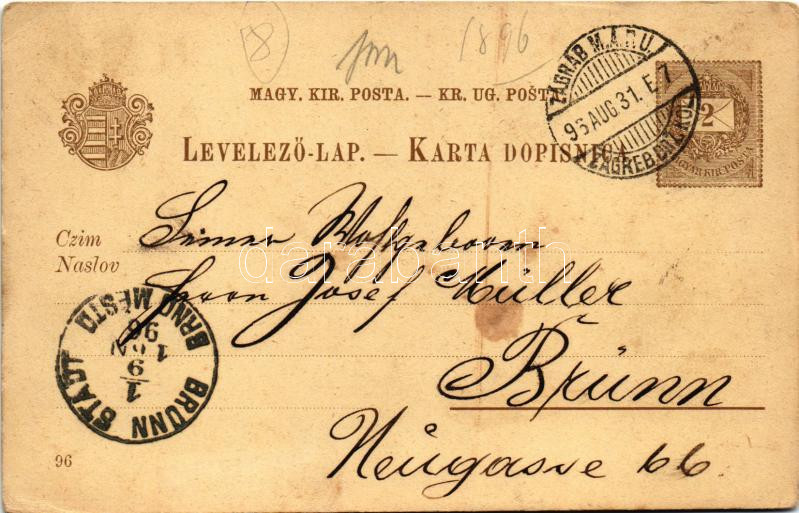 8
1896
MAGY. KIR. POSTA. — KR. UG. POŠTA.
LEVELEZŐ-LAP. — KARTA DOPISNICA.
ZÁGRÁB M.Á.P.U.
96 AUG. 31. E. 7
ZAGREB
2
MAGYAR KIR. POSTA
Czim
Naslov
Seiner Wohlgeboren
Herrn Josef Müller
Brünn
Neugasse 66.
BRÜNN STADT
BRNO MĚSTO
1
9
96
darabanth
96